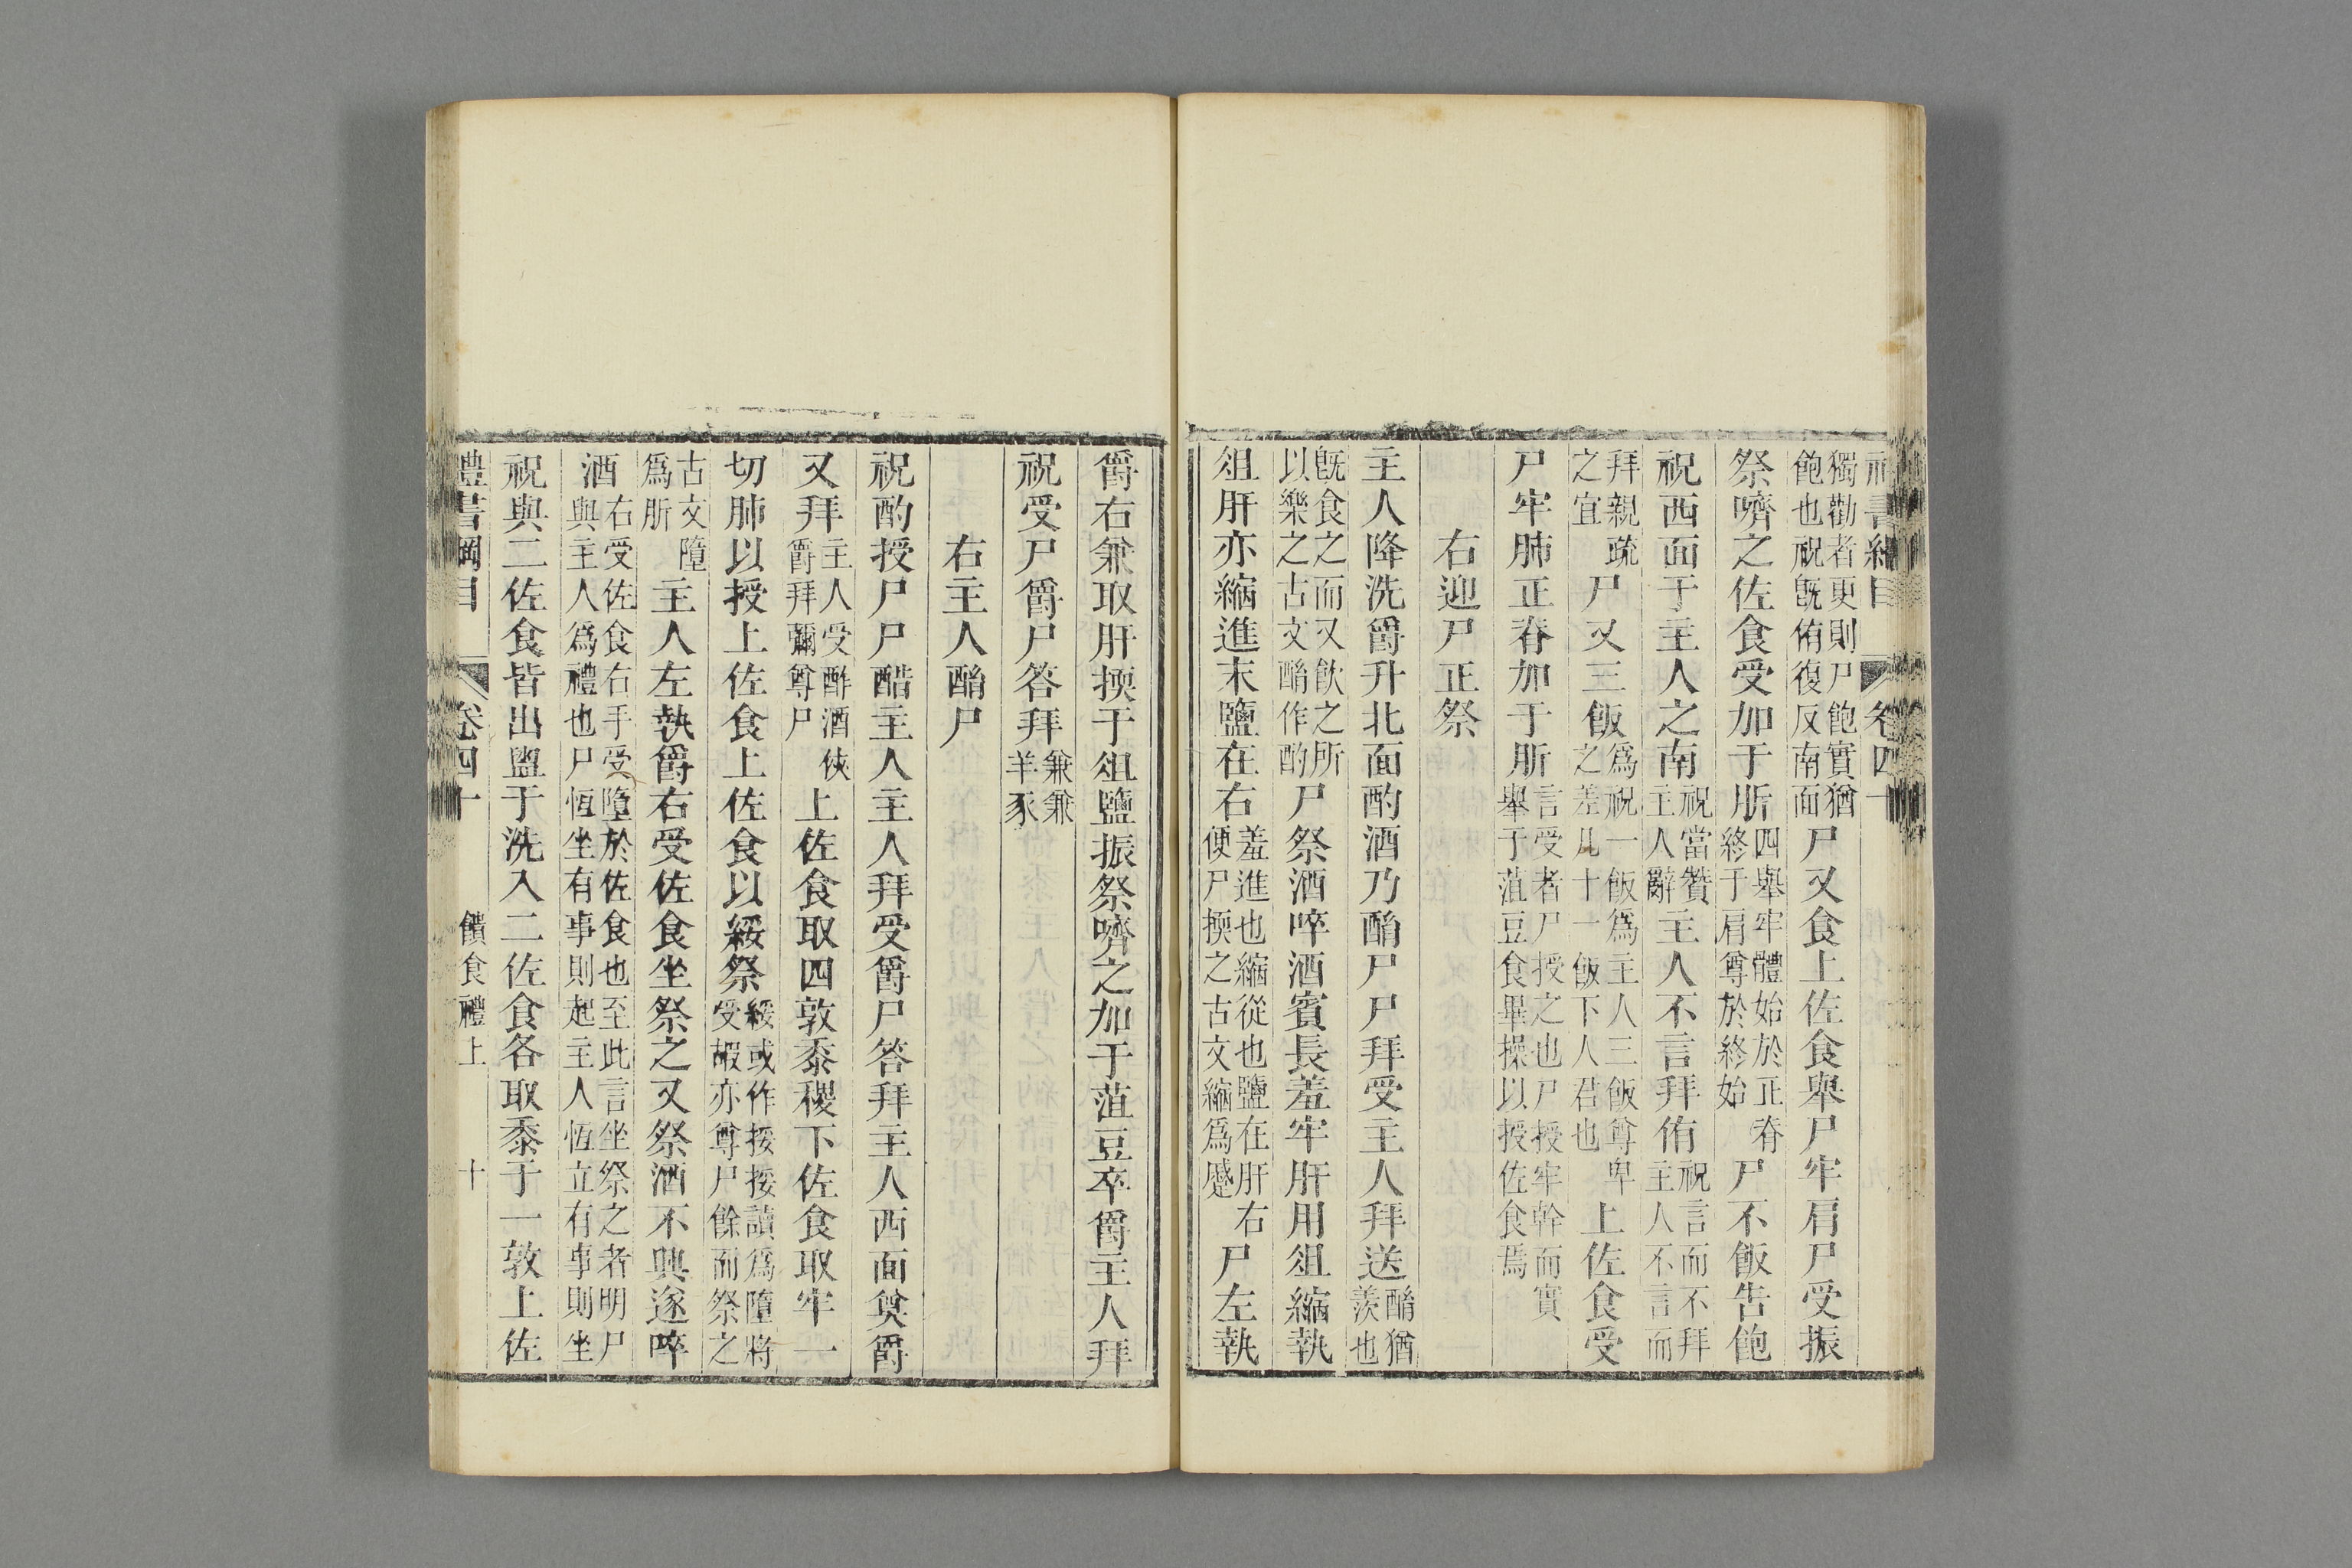 獨勸者更則尸飽實猶
飽也祝旣侑復反南面
尸又食上佐食舉尸牢肩尸受振
祭嚌之佐食受加于肵
四舉牢體始於正脊
終于肩尊於終始
尸不飯告飽
祝西面于主人之南
祝當贊
主人辭
主人不言拜侑
祝言而不拜
主人不言而
拜親疏
之宜
尸又三飯
爲祝一飯爲主人三飯尊卑
之差凡十一飯下人君也
上佐食受
尸牢肺正脊加于肵
言受者尸授之也尸授牢幹而實
舉于菹豆食畢操以授佐食焉
右迎尸正祭
主人降洗爵升北面酌酒乃酳尸尸拜受主人拜送
酳猶
羨也
旣食之而又飲之所
以樂之古文酳作酌
尸祭酒啐酒賓長羞牢肝用俎縮執
俎肝亦縮進末鹽在右
羞進也縮從也鹽在肝右
便尸㨎之古文縮爲蹙
尸左執
爵右兼取肝㨎于俎鹽振祭嚌之加于菹豆卒爵主人拜
祝受尸爵尸答拜
兼兼
羊豕
右主人酳尸
祝酌授尸尸醋主人主人拜受爵尸答拜主人西面奠爵
又拜
主人受酢酒俠
爵拜彌尊尸
上佐食取四敦黍稷下佐食取牢一
切肺以授上佐食上佐食以綏祭
綏或作挼挼讀爲墮將
受嘏亦尊尸餘而祭之
古文墮
爲肵
主人左執爵右受佐食坐祭之又祭酒不興遂啐
酒
右受佐食右手受墮於佐食也至此言坐祭之者明尸
與主人爲禮也尸恆坐有事則起主人恆立有事則坐
祝與二佐食皆出盥于洗入二佐食各取黍于一敦上佐
禮書綱目 卷四十 饋食禮上 十